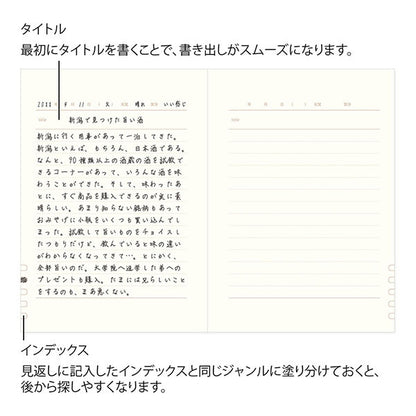 タイトル
最初にタイトルを書くことで、書き出しがスムーズになります。
新潟で見つけた旨い酒
新潟に行く用事があって一泊してきた。
新潟といえば、もちろん、日本酒である。
なんと、90種類以上の酒蔵の酒を試飲で
きるコーナーがあって、いろんな酒を味
わうことができた。そして、味わったあ
とに、すぐ商品を購入できるのが実に素
晴らしい。あまり知らない銘柄もあって
おみやげに小瓶をいくつも買い込んでし
まった。試飲して旨いものをチョイスし
たつもりだけど、飲んでいると味の違い
がわからなくなってきて…。とにかく、
全部旨いのだ。大学院へ進学した弟への
プレゼントも購入。たまには兄らしいこと
をするのも、まあ悪くない。
インデックス
見返しに記入したインデックスと同じジャンルに塗り分けておくと、
後から探しやすくなります。